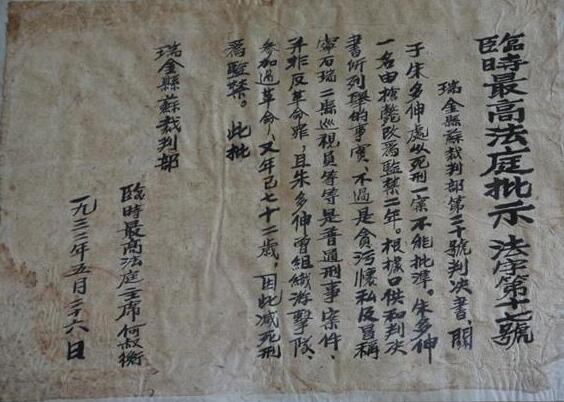 臨時最高法庭批示 法字第十七號
瑞金縣蘇裁判部第二十號判决書、關
于朱多伸處以死刑一案不能批準。朱多伸
一名由槍斃改爲監禁二年。根據口供和判决
書所列舉的事實、不過是貪污懷私及冒稱
寧石瑞三縣巡視員等等是普通刑事案件、
并非反革命罪、且朱多伸曾組織游擊隊、
參加過革命、又年已七十二歲、因此减死刑
爲監禁。此批
瑞金縣蘇裁判部
臨時最高法庭主席何叔衡
一九三二年五月二十六日